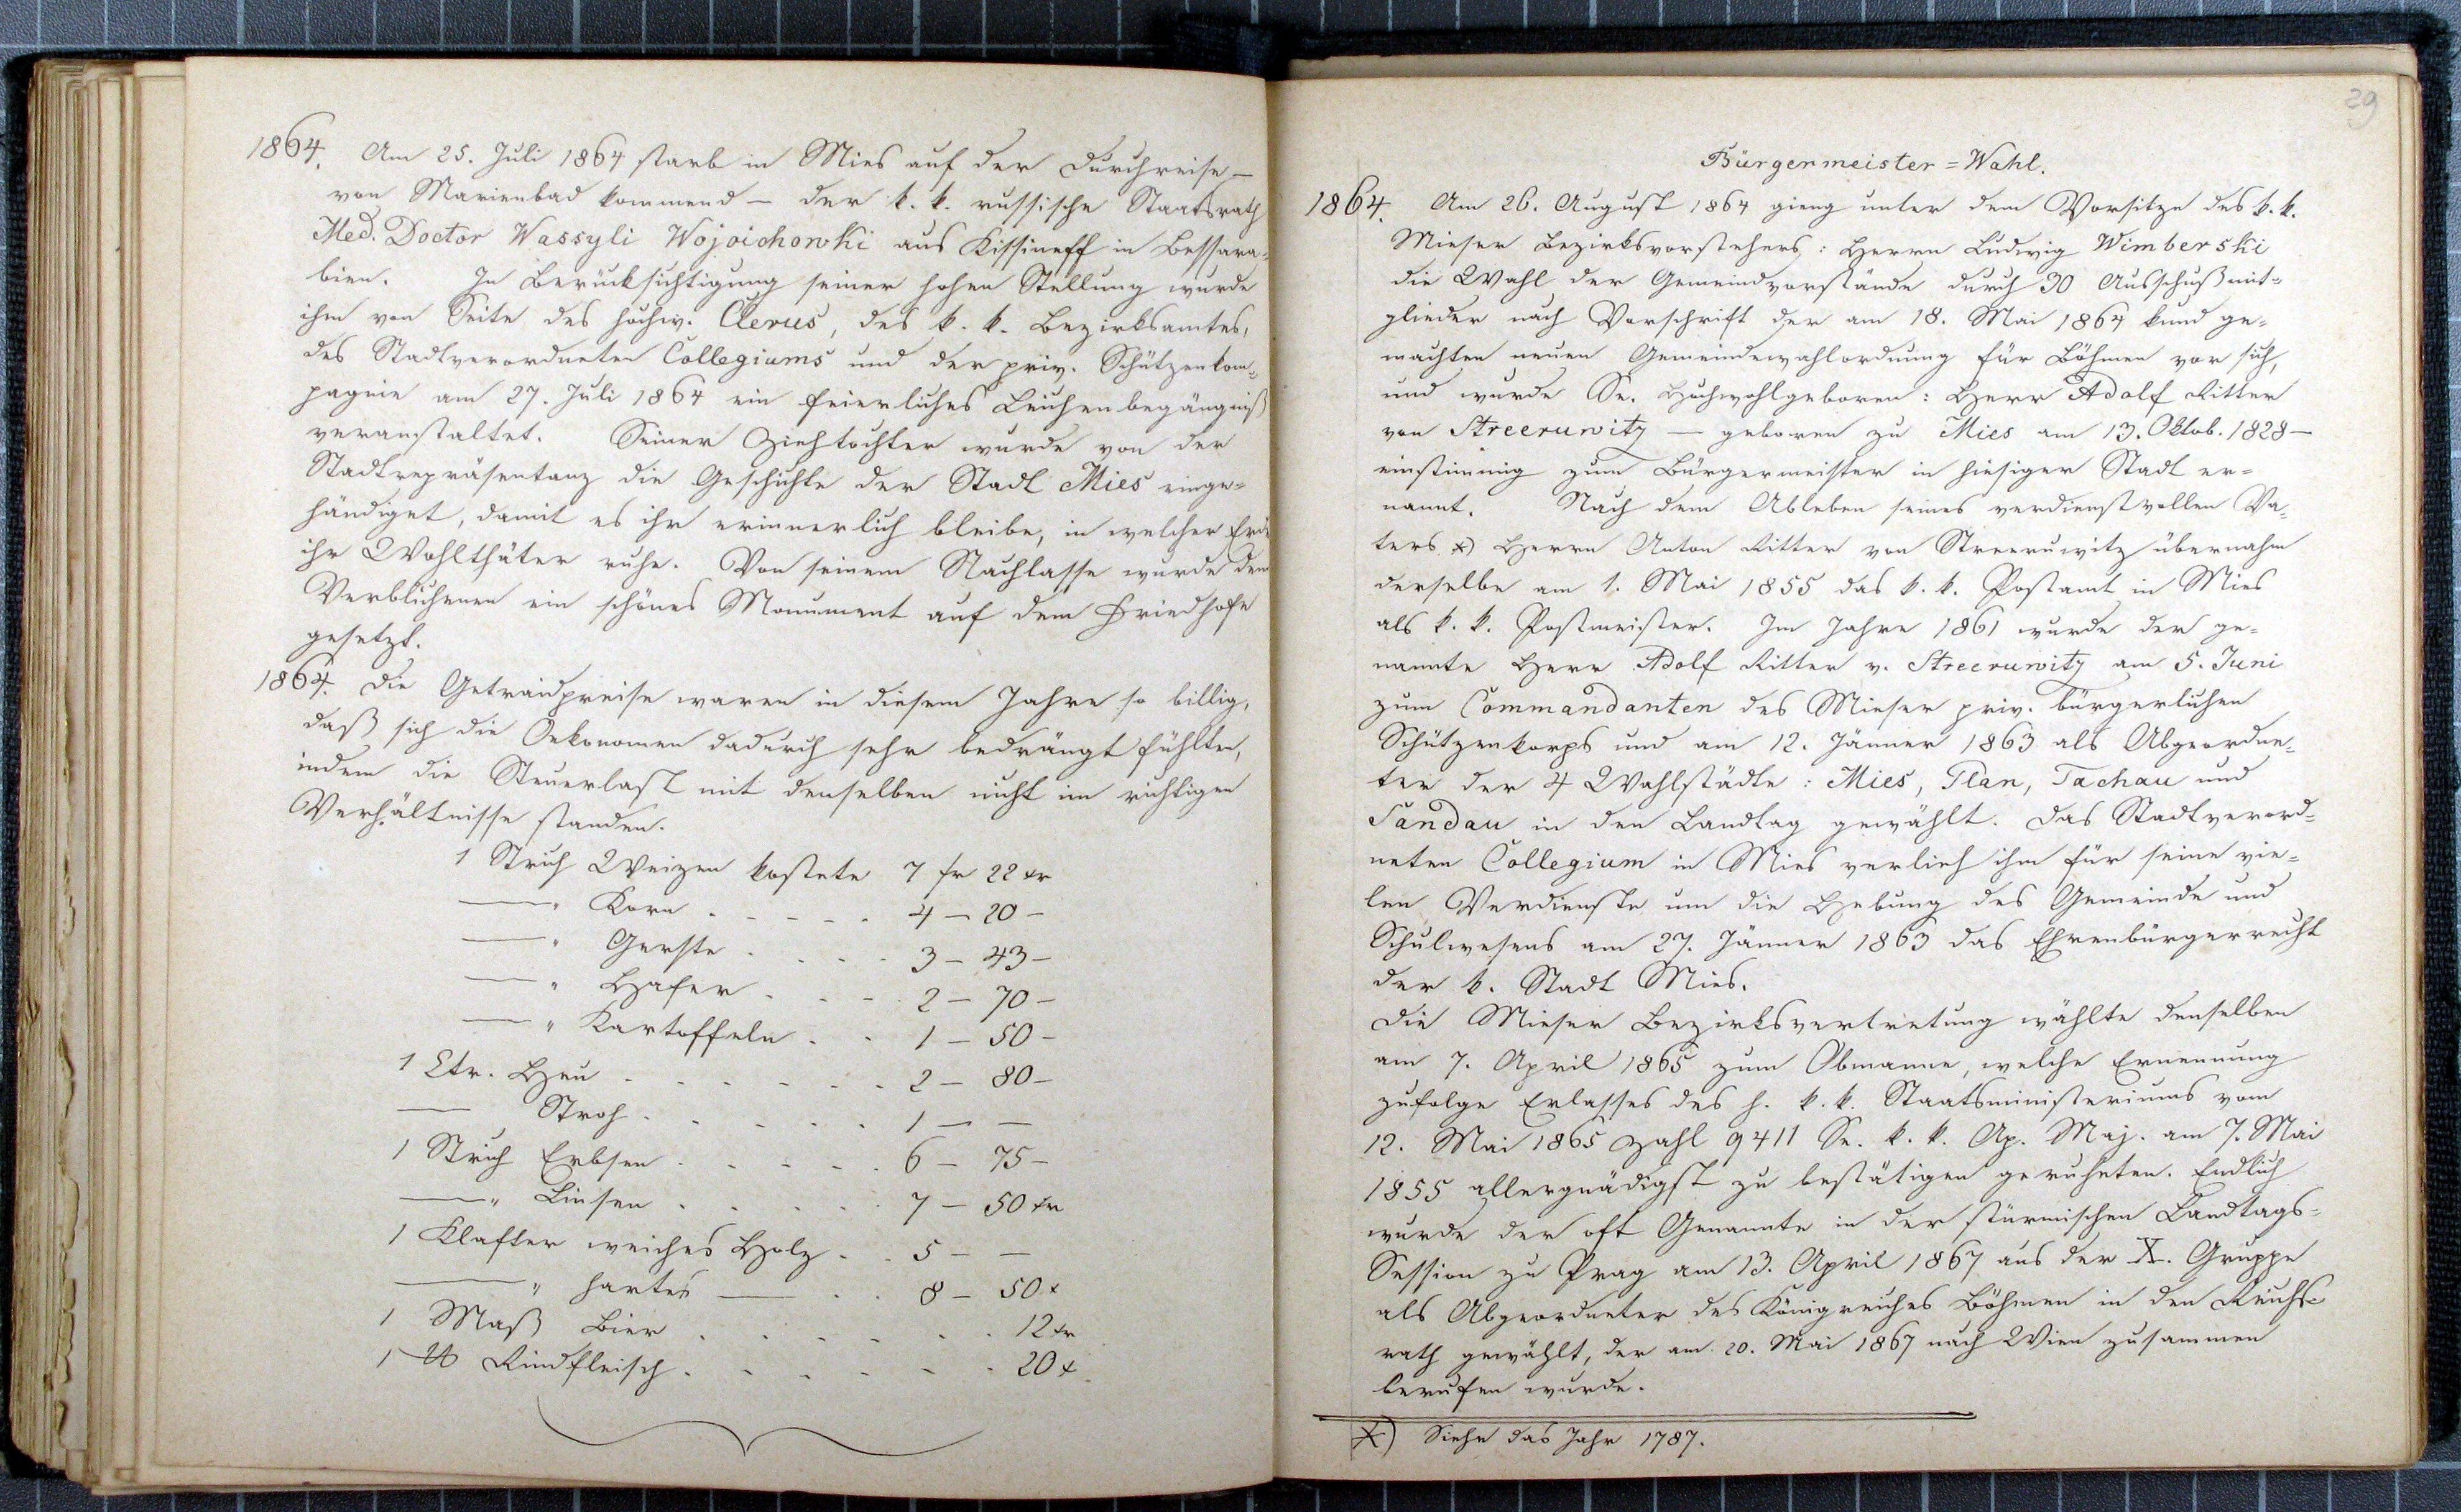 1864. Am 25. Juli 1864 starb in Mies auf der Durchreise –
von Marienbad kommend – der k. k. russische Staatsrath
Med. Doctor Wassyli Wojoichowki aus Kissineff in Bessara-
bien. In Berücksichtigung seiner hohen Stellung wurde
ihm von Seite des hochw. Clerus, des k. k. Bezirksamtes,
des Stadtverordneten Collegiums und der priv. Schützenkom-
pagnie am 27. Juli 1864 ein feierliches Leichenbegängniß
veranstaltet. Seiner Ziehtochter wurde von der
Stadtrepräsentanz die Geschichte der Stadt Mies einge-
händiget, damit es ihr erinnerlich bleibe, in welcher Erde
ihr Wohlthäter ruhe. Von seinem Nachlasse wurde dem
Verblichenen ein schönes Monument auf dem Friedhofe
gesetzt.
1864. Die Getraidpreise waren in diesem Jahre so billig,
daß sich die Oekonomen dadurch sehr bedrängt fühlten,
indem die Steuerlast mit denselben nicht im richtigen
Verhältnisse standen.
1 Strich Weizen kostete 7 fr 22 xr
— " Korn . . . . . 4 – 20 –
— " Gerste . . . . 3 – 43 –
— " Hafer . . . . 2 – 70 –
— " Kartoffeln . . 1 – 50 –
1 Ctr. Heu . . . . . . 2 – 80 –
— Stroh . . . . . 1 – –
1 Strich Erbsen . . . . . 6 – 75 –
— " Linsen . . . . . 7 – 50 xr
1 Klafter weiches Holz . . 5 – –
— " hartes — . . 8 – 50 x
1 Maß Bier . . . . . . 12 xr
1 ℔ Rindfleisch . . . . . . 20 x
29
Bürgermeister = Wahl.
1864. Am 26. August 1864 gieng unter dem Vorsitze des k. k.
Mieser Bezirksvorstehers: Herrn Ludwig Wimberski
die Wahl der Gemeindvorstände durch 30 Ausschußmit-
glieder nach Vorschrift der am 18. Mai 1864 kund ge-
machten neuen Gemeindewahlordnung für Böhmen vor sich,
und wurde Se. Hochwohlgeboren: Herr Adolf Ritter
von Streeruwitz — geboren zu Mies am 13. Oktob. 1828 —
einstimmig zum Bürgermeister in hiesiger Stadt er-
nannt. Nach dem Ableben seines verdienstvollen Va-
ters x) Herrn Anton Ritter von Streeruwitz übernahm
derselbe am 1. Mai 1855 das k. k. Postamt in Mies
als k. k. Postmeister. Im Jahre 1861 wurde der ge-
nannte Herr Adolf Ritter v. Streeruwitz am 5. Juni
zum Commandanten des Mieser priv. bürgerlichen
Schützenkorps und am 12. Jänner 1863 als Abgeordne-
ter der 4 Wahlstädte: Mies, Plan, Tachau und
Sandau in den Landtag gewählt. Das Stadtverord-
neten Collegium in Mies verlieh ihm für seine vie-
len Verdienste um die Hebung des Gemeinde und
Schulwesens am 27. Jänner 1863 das Ehrenbürgerrecht
der k. Stadt Mies.
Die Mieser Bezirksvertretung wählte denselben
am 7. April 1865 zum Obmanne, welche Ernennung
zufolge Erlasses des h. k. k. Staatsministeriums vom
12. Mai 1865 Zahl 9411 Se. k. k. Ap. Maj. am 7. Mai
1855 allergnädigst zu bestätigen geruheten. Endlich
wurde der oft Genannte in der stürmischen Landtags-
Session zu Prag am 13. April 1867 aus der X. Gruppe
als Abgeordneter des Königreiches Böhmen in den Reichs-
rath gewählt, der am 20. Mai 1867 nach Wien zusammen
berufen wurde.
x) Siehe das Jahr 1787.